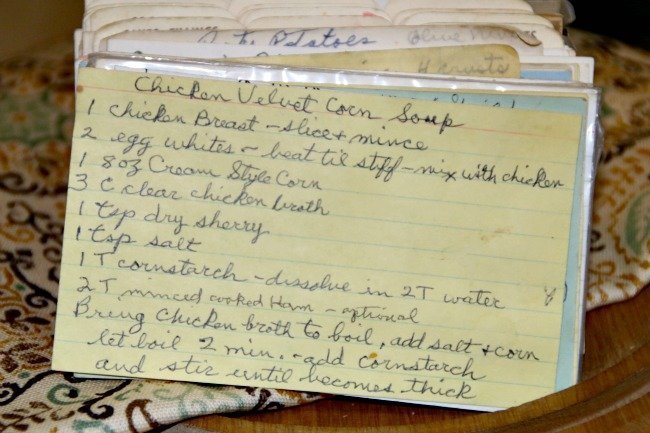 Potatoes Olive
Chicken Velvet Corn Soup
1 chicken Breast - slice & mince
2 egg whites - beat til stiff - mix with chicken
1 8oz Cream Style Corn
3 C clear chicken broth
1 tsp dry sherry
1 tsp salt
1 T cornstarch - dissolve in 2T water
2 T minced cooked Ham - optional
Bring chicken broth to boil, add salt & corn
let boil 2 min. - add cornstarch
and stir until becomes thick